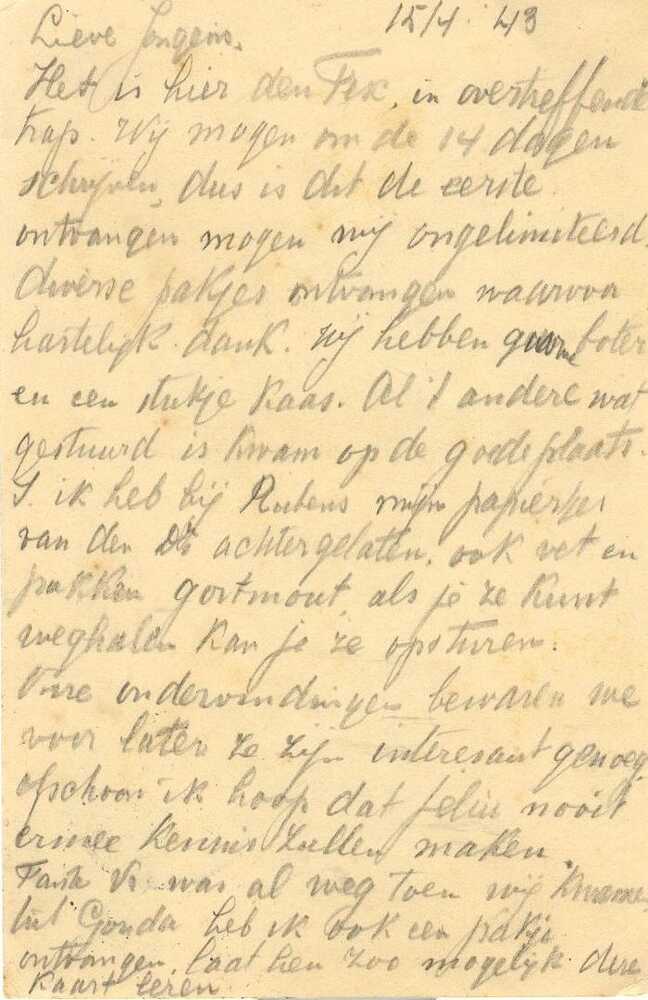 15/4. 43
Lieve Jongens.
Het is hier den Frx, in overtreffende
trap. Wij mogen om de 14 dagen
schrijven, dus is dit de eerste
ontvangen mogen wij ongelimiteerd.
diverse pakjes ontvangen waarvoor
hartelijk dank. Wij hebben boter
en een stukje kaas. Al 't andere wat
gestuurd is kwam op de goede plaats.
S. ik heb bij Rubens mijn papiertjes
van den achtergelaten. ook vet en
pakken gortmout, als je ze kunt
weghalen kan je ze opsturen.
Onze ondervindingen bewaren we
voor later ze zijn interesant genoeg
ofschoon ik hoop dat jelui nooit
ermee kennis zullen maken.
Tante V. was al weg toen wij kwamen
uit Gouda heb ik ook een pakje
ontvangen. laat hen zoo mogelijk deze
kaart lezen